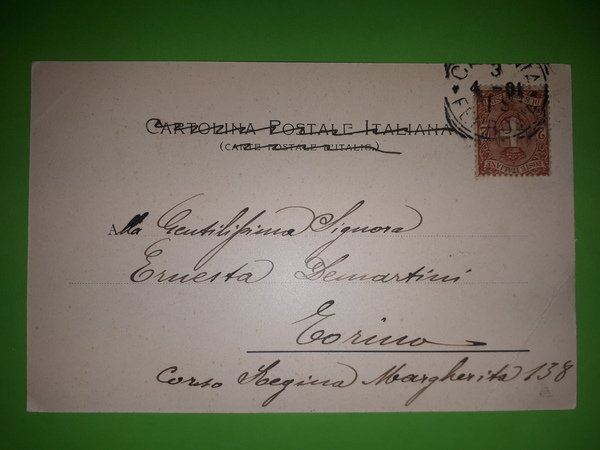 CARTOLINA POSTALE ITALIANA
(CARTE POSTALE D'ITALIE)
Alla Gentilissima Signora
Ernesta Demartini
Torino
Corso Regina Margherita 138
3
4 - 01